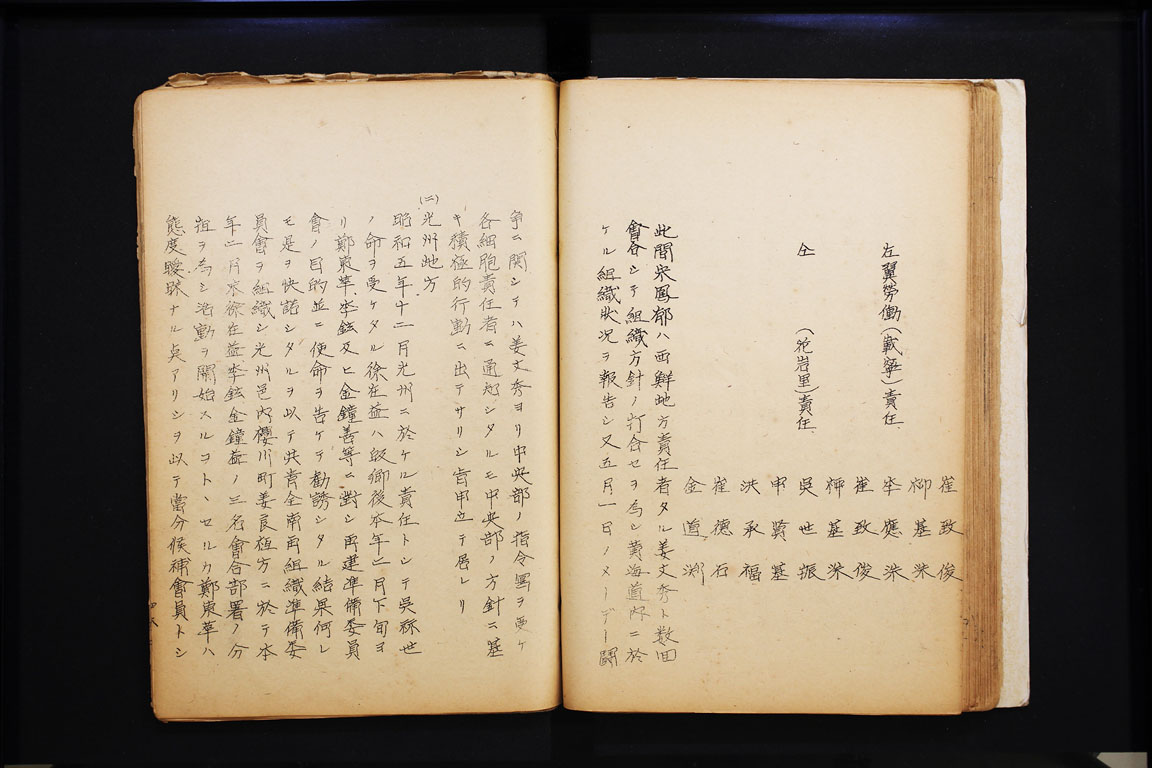 崔致俊
柳基洙
左翼労働(載寧)責任 李應洙
崔致俊
柳基洙
仝 (花岩里)責任 呉世振
申賢基
洪承福
崔德石
金道渊
此間宋鳳郁ハ西鮮地方責任者タル姜文秀ト数回
會合シテ組織方針ノ打合セヲ為シ黄海道内ニ於
ケル組織狀況ヲ報告シ又五月一日ノメーデー闘
争ニ関シテハ姜文秀ヨリ中央部ノ指令書ヲ受ケ
各細胞責任者ニ通知シタルモ中央部ノ方針ニ基
キ積極的行動ニ出テサリシ旨申立テ居レリ
(二)光州地方
昭和五年十二月光州ニ於ケル責任トシテ呉祘世
ノ命ヲ受ケタル徐在益ハ皈郷後本年二月下旬ヨ
リ鄭東華、李鉉及ヒ金鐘善等ニ對シ再建準備委員
會ノ目的並ニ使命ヲ告ケテ勧誘シタル結果何レ
モ是ヲ快諾シタルヲ以テ共青全南再組織準備委
員會ヲ組織シ光州邑内櫻川町姜良栢方ニ於テ本
年二月末徐在益李鉉金鐘益ノ三名會合部署ノ分
担ヲ為シ活動ヲ開始スルコトヽセルカ鄭東華ハ
態度曖昧ナル点アリシヲ以テ當分候補會員トシ